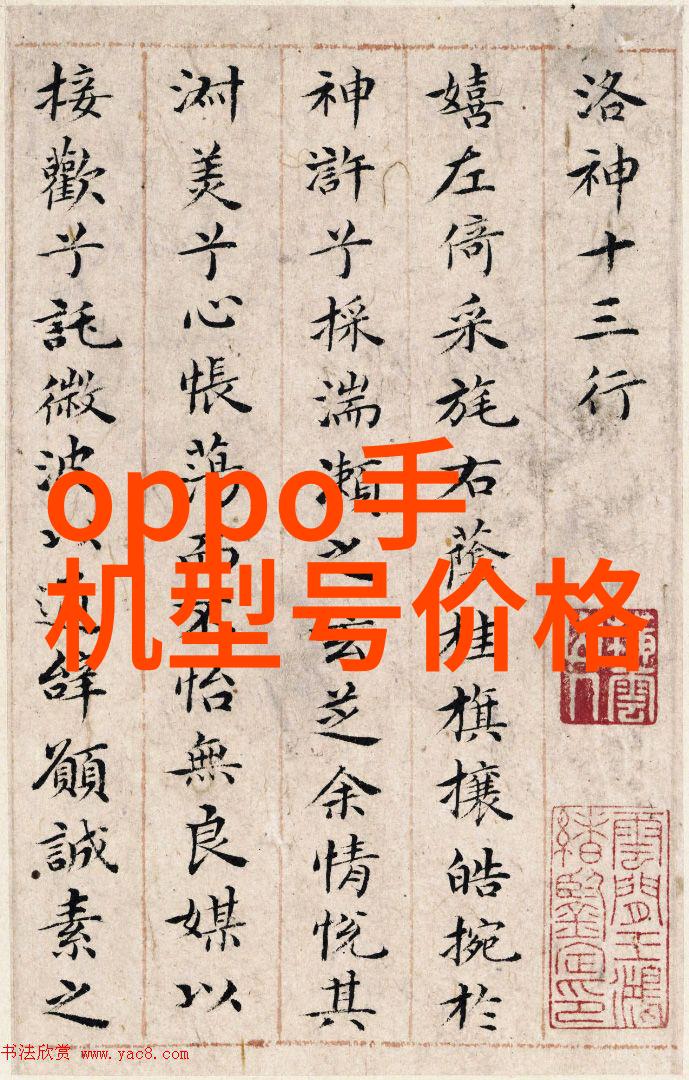 洛神十三行
嬉左倚采旄右蔭桂旗攘皓捥於
神許兮採湍瀨之玄芝余情悅其
淑美兮心帳蕩而不怡無良媒以
接歡兮託微波以通辭願誠素之
oppo手
机型号价格
雲間王鴻
緒鑒定印
书法欣赏 www.yac8.com